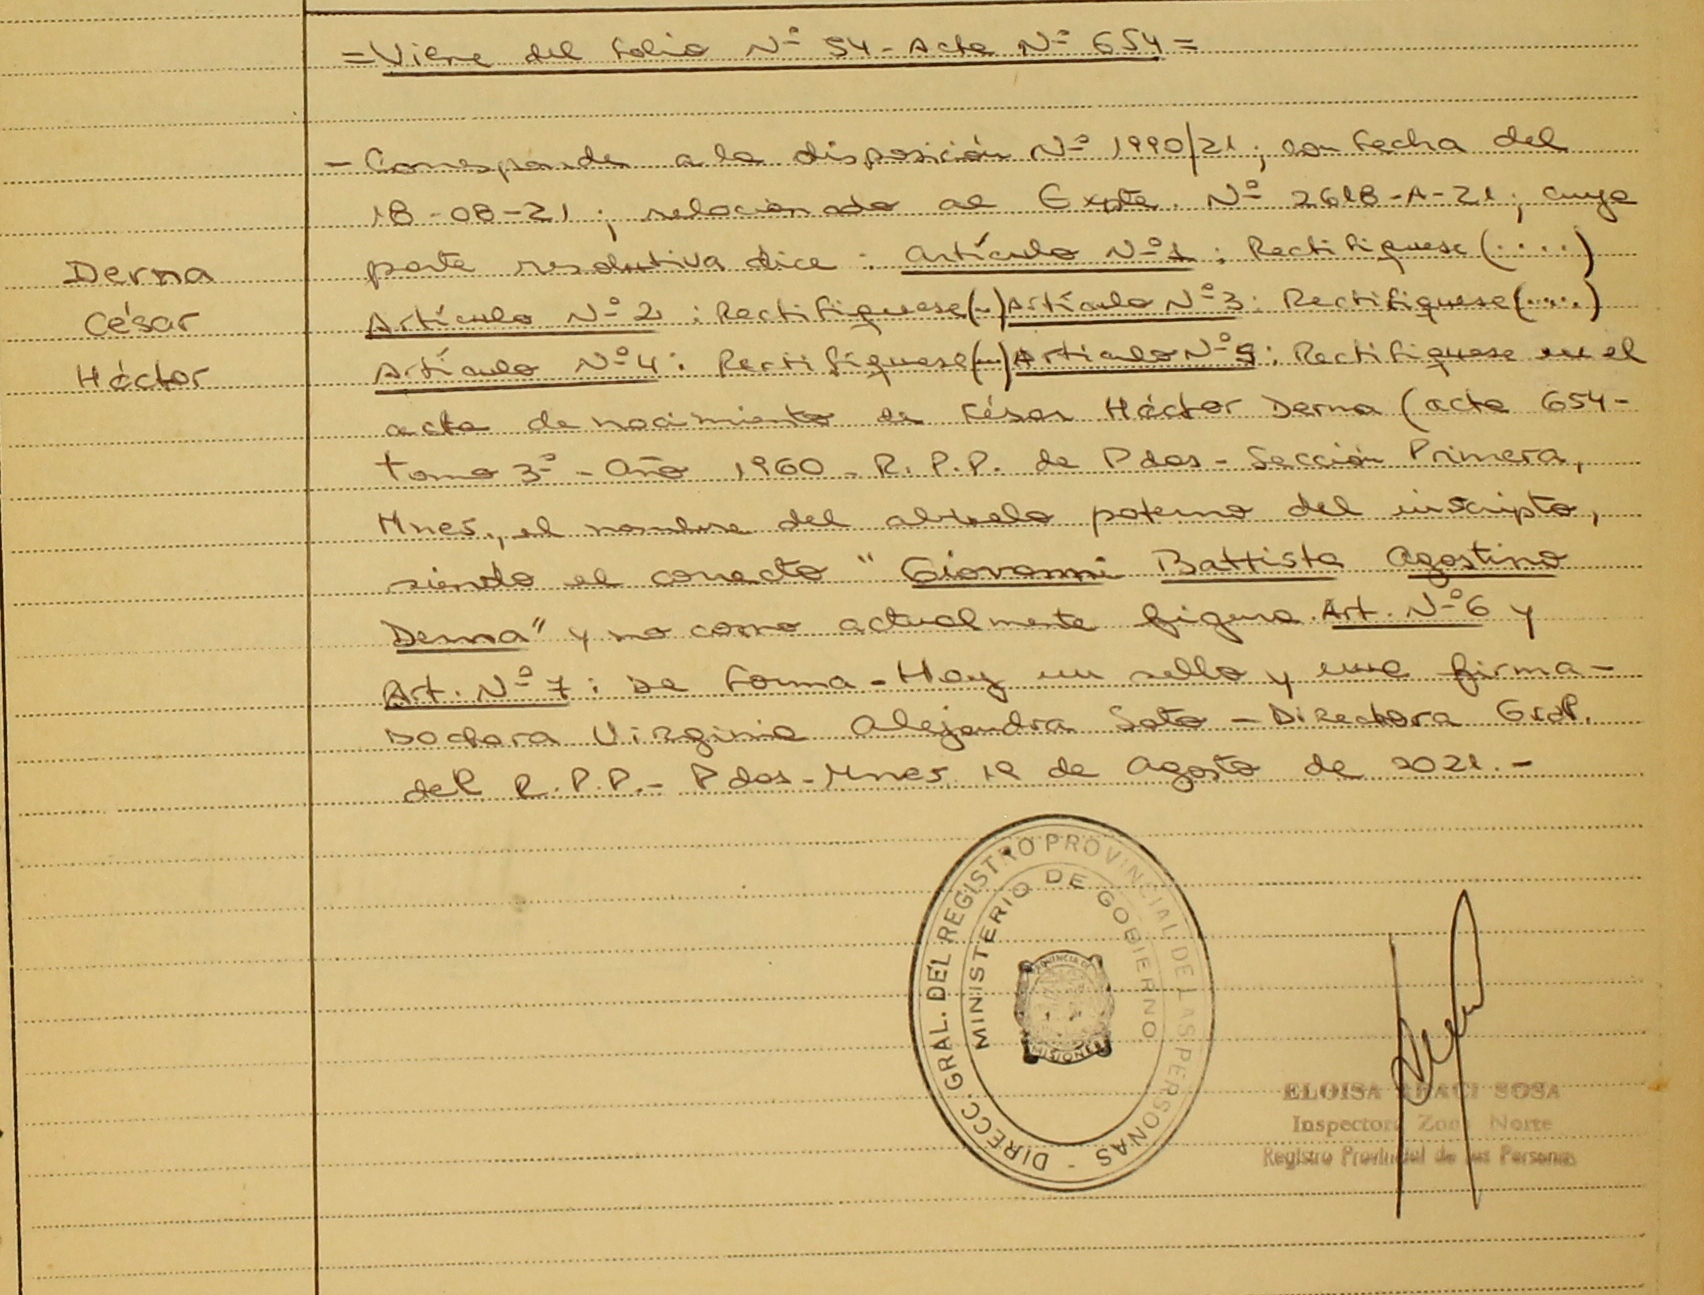 =Viene del folio Nº 54 - Acta Nº 654=
- Corresponde a la disposición Nº 1990/21; con fecha del
18-08-21; relacionado al Expte. Nº 2618-A-21; cuya
parte resolutiva dice: Artículo Nº 1: Rectifiquese (....)
Derna
César
Héctor
Artículo Nº 2: Rectifiquese (...) Artículo Nº 3: Rectifiquese (....)
Artículo Nº 4: Rectifiquese (...) Artículo Nº 5: Rectifiquese en el
acta de nacimiento de César Héctor Derna (acta 654-
tomo 3º - Año 1960 - R.P.P. de Pdas - Sección Primera,
Mnes., el nombre del abuelo paterno del inscripto,
siendo el correcto "Giovanni Battista Agostino
Derna" y no como actualmente figura. Art. Nº 6 y
Art. Nº 7: De forma - Hay un sello y una firma -
Doctora Virginia Alejandra Soto - Directora Gral.
del R.P.P. - Pdas - Mnes, 19 de Agosto de 2021.-
DIRECC. GRAL. DEL REGISTRO PROVINCIAL DE LAS PERSONAS -
MINISTERIO DE GOBIERNO
PROVINCIA DE
MISIONES
ELOISA ARACI SOSA
Inspectora Zona Norte
Registro Provincial de las Personas